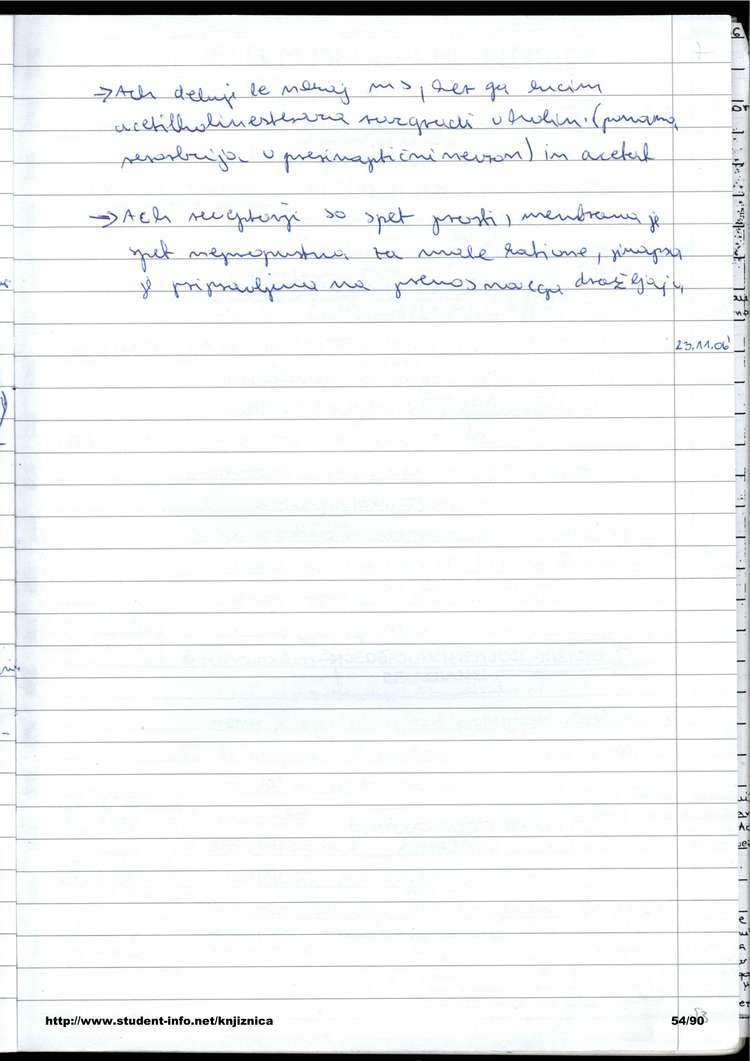 → Ach deluje le nekaj ms, ker ga encim
acetilholinesteraza razgradi v holin (ponovna
resorbcija v presinaptični nevron) in acetat
→ Ach receptorji so spet prosti, membrana je
spet nepropustna za male katione, sinapsa
je pripravljena na prenos novega dražljaja
23.11.06
http://www.student-info.net/knjiznica
54/90